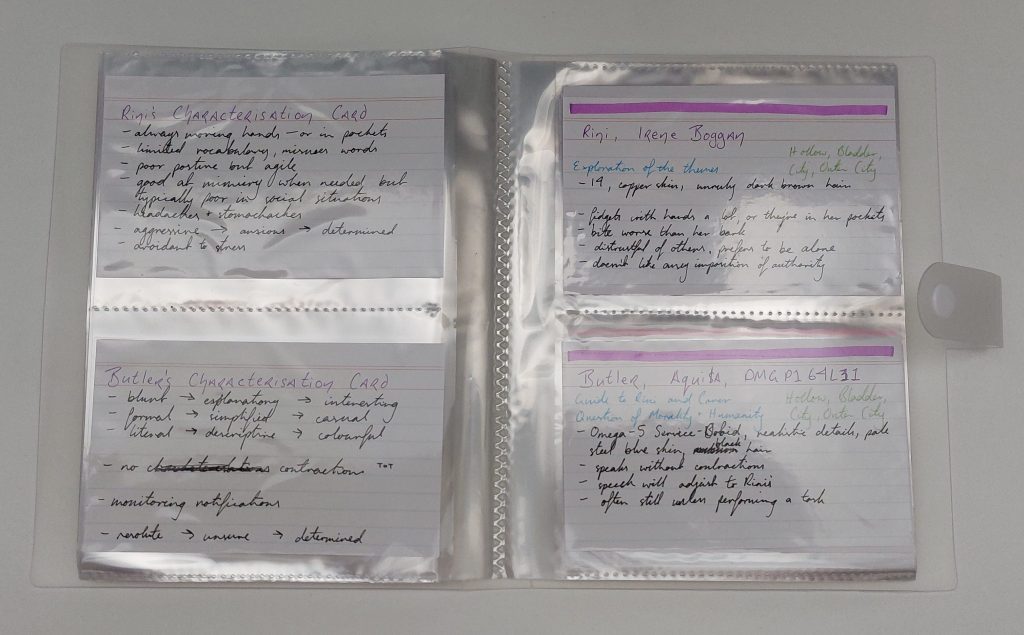 Rini's Characterisation Card
- always moving hands - or in pockets
- limited vocabulary, misuses words
- poor posture but agile
- good at mimicry when needed but
typically poor in social situations
- headaches + stomachaches
- aggressive → anxious → determined
- avoidant to stress
Butler's Characterisation Card
- blunt → explanationy → interesting
- formal → simplified → casual
- literal → descriptive → colourful
- no contractions TOT
- monitoring notifications
- resolute → unsure → determined
Rini, Irene Boggan
Hollow, Bladder,
City, Outer City
Exploration of the themes
- 14, copper skin, unruly dark brown hair
- fidgets with hands a lot, or they're in her pockets
- bite worse than her bark
- distrustful of others, prefers to be alone
- doesn't like any imposition of authority
Butler, Aquila, OMGP1 64L31
Guide to Rini and
Hollow, Bladder,
Question of Morality + Humanity
City, Outer City
- Omega-5 Service-Bobid, realistic details, pale
steel blue skin, black hair
- speaks without contractions
- speech will adjust to Rini's
- often still unless performing a task